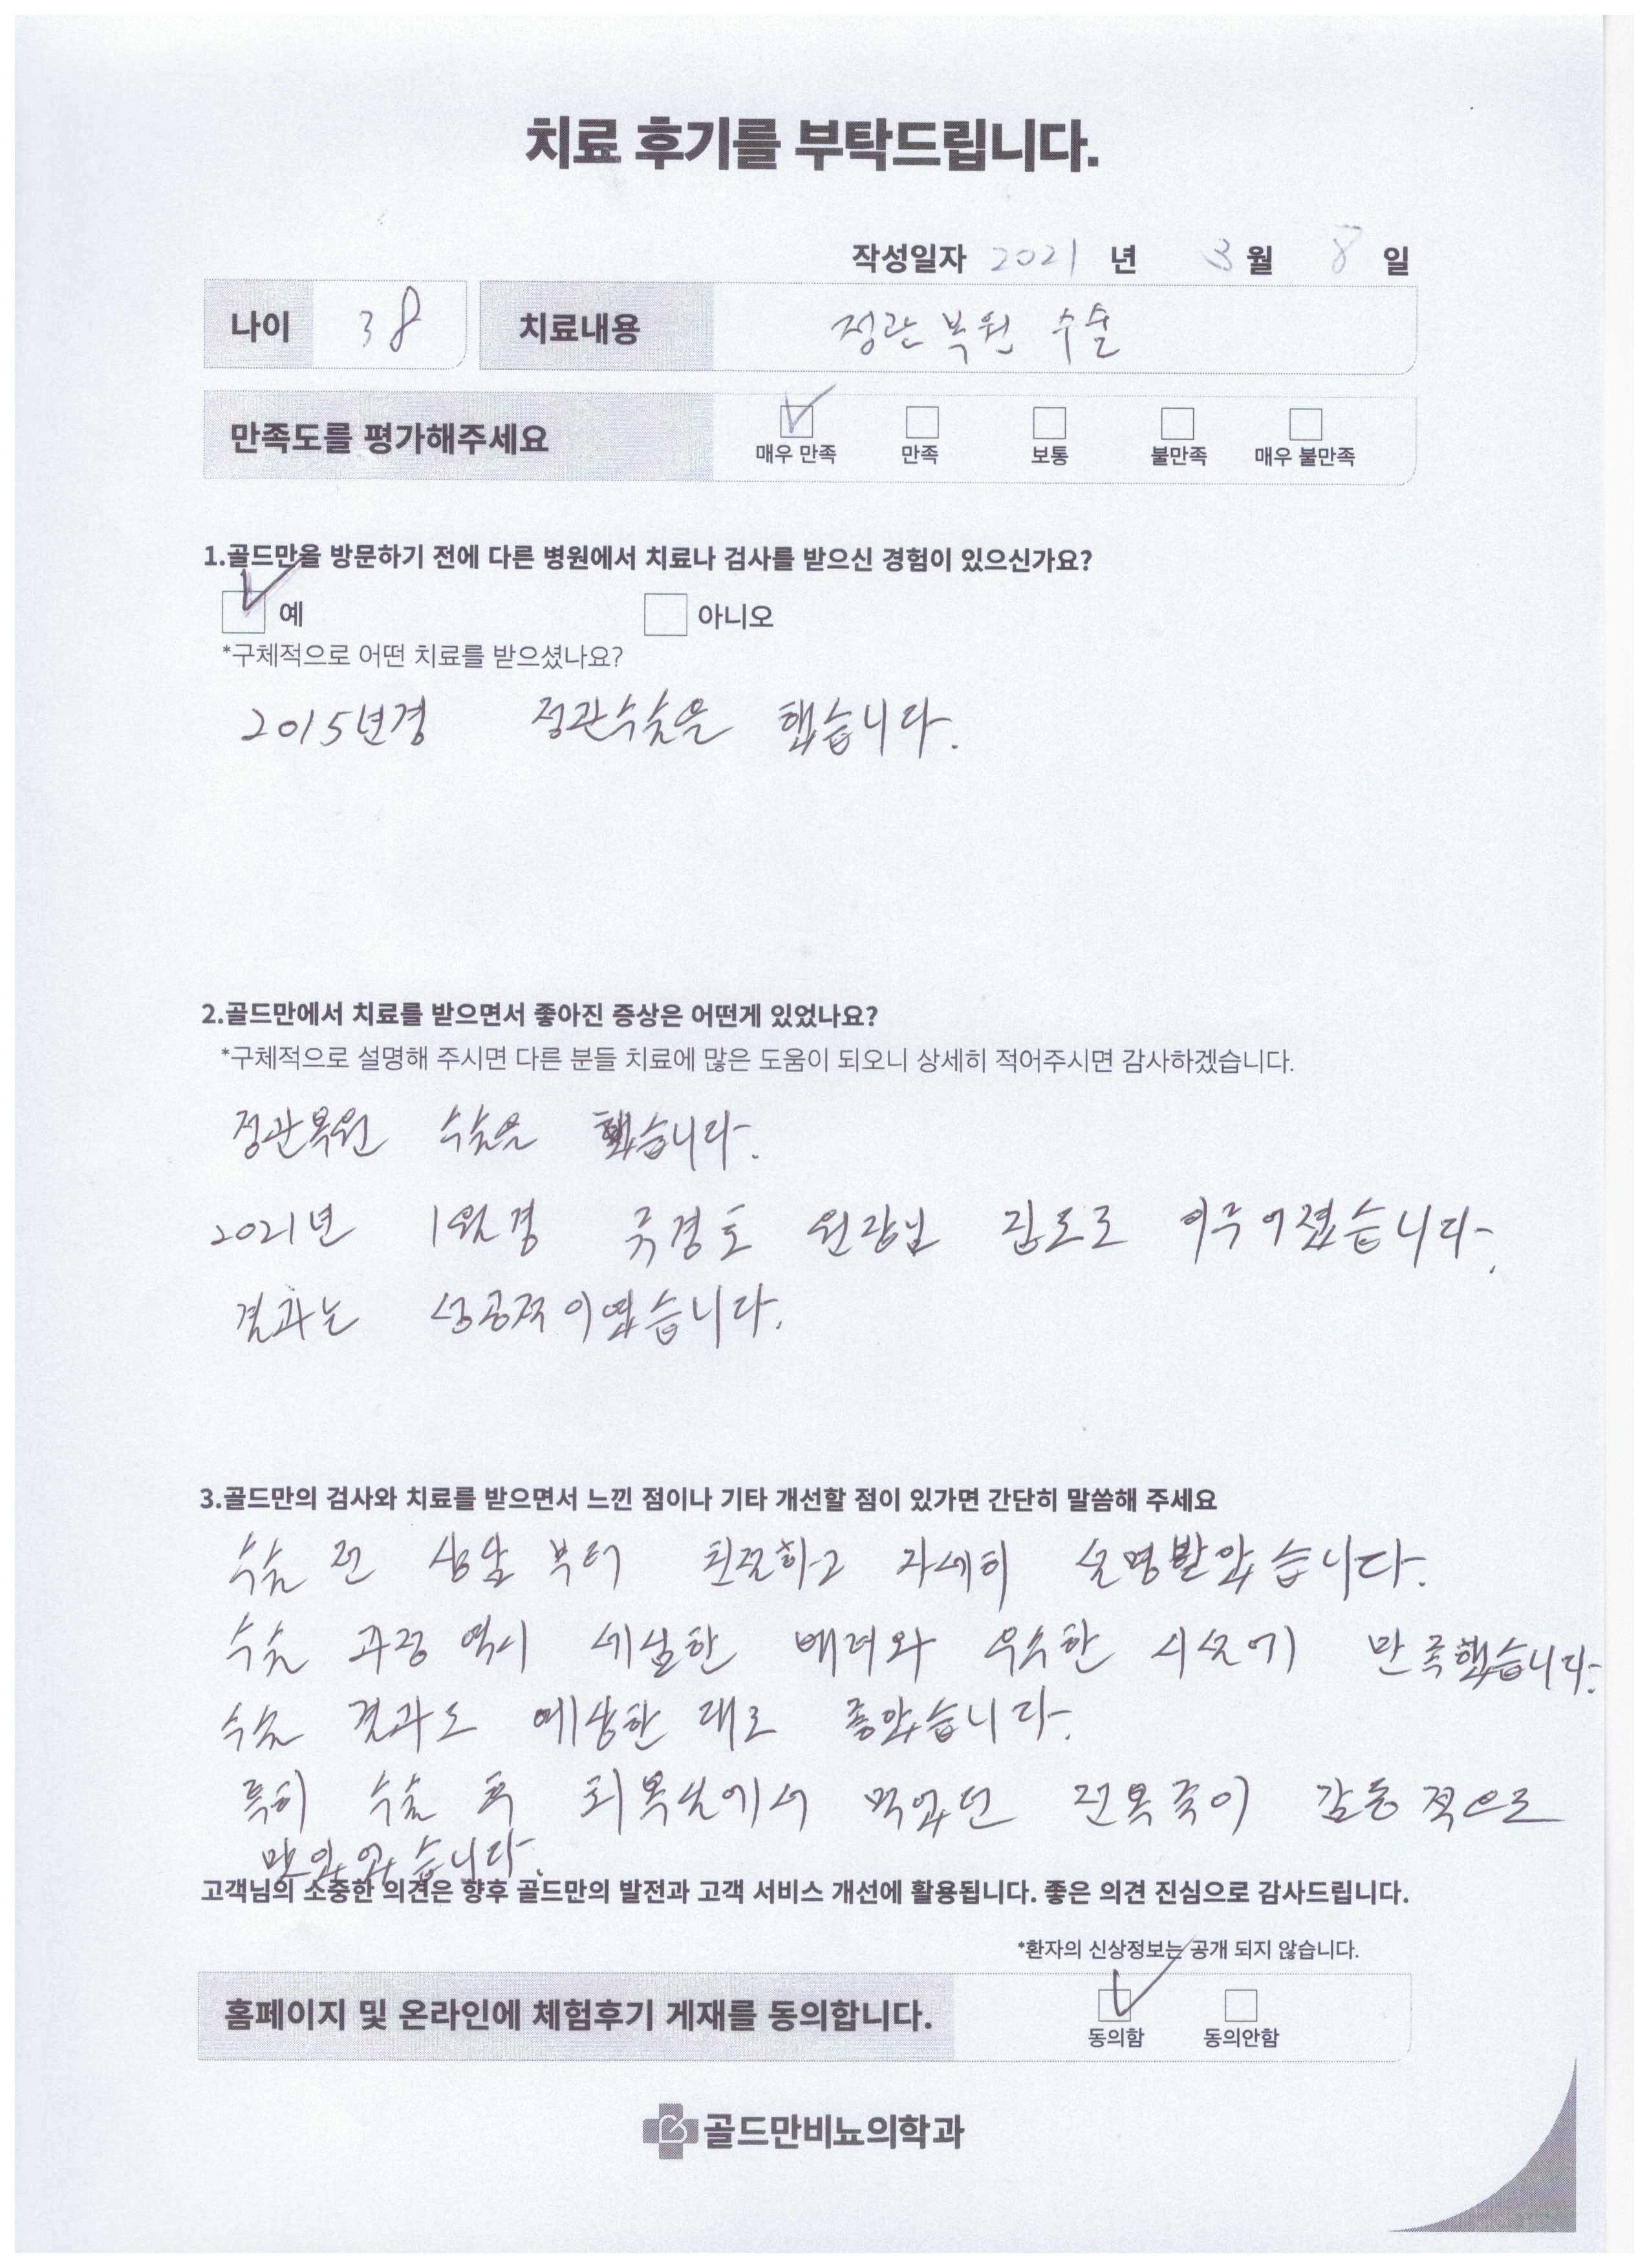 치료 후기를 부탁드립니다.
작성일자 2021 년 3 월 8 일
나이 38 치료내용 정관복원 수술
만족도를 평가해주세요 매우 만족 만족 보통 불만족 매우 불만족
1.골드만을 방문하기 전에 다른 병원에서 치료나 검사를 받으신 경험이 있으신가요?
예 아니오
*구체적으로 어떤 치료를 받으셨나요?
2015년경 정관수술을 했습니다.
2.골드만에서 치료를 받으면서 좋아진 증상은 어떤게 있었나요?
*구체적으로 설명해 주시면 다른 분들 치료에 많은 도움이 되오니 상세히 적어주시면 감사하겠습니다.
정관복원 수술을 했습니다.
2021년 1월경 류경호 원장님 집도로 이루어졌습니다.
결과는 성공적이였습니다.
3.골드만의 검사와 치료를 받으면서 느낀 점이나 기타 개선할 점이 있가면 간단히 말씀해 주세요
수술 전 상담 부터 친절하고 자세히 설명받았습니다.
수술 과정 역시 세심한 배려와 우수한 시설에 만족했습니다.
수술 결과도 예상한 대로 좋았습니다.
특히 수술 후 회복실에서 먹었던 전복죽이 감동적으로
맛있었습니다.
고객님의 소중한 의견은 향후 골드만의 발전과 고객 서비스 개선에 활용됩니다. 좋은 의견 진심으로 감사드립니다.
*환자의 신상정보는 공개 되지 않습니다.
홈페이지 및 온라인에 체험후기 게재를 동의합니다. 동의함 동의안함
골드만비뇨의학과